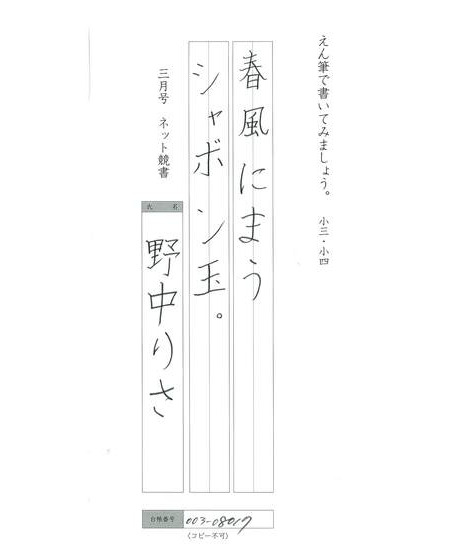 えん筆で書いてみましょう。　小三・小四
春風にまう
シャボン玉。
三月号　ネット競書
氏名
野中りさ
台帳番号 003-08017
(コピー不可)